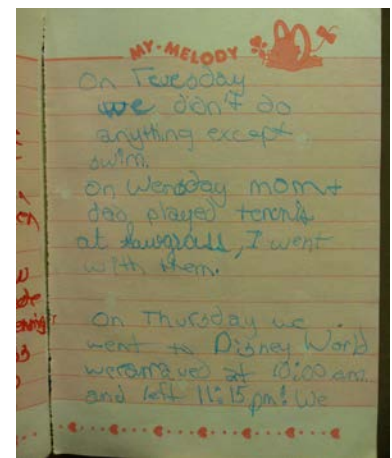 MY-MELODY
On Tuesday
we didn't do
anything except
swim.
On Wensday mom +
dad played tennis
at sawgrass, I went
with them.
On Thursday we
went to Disney World
we arrived at 10:00 am.
and left 11:15 pm! We